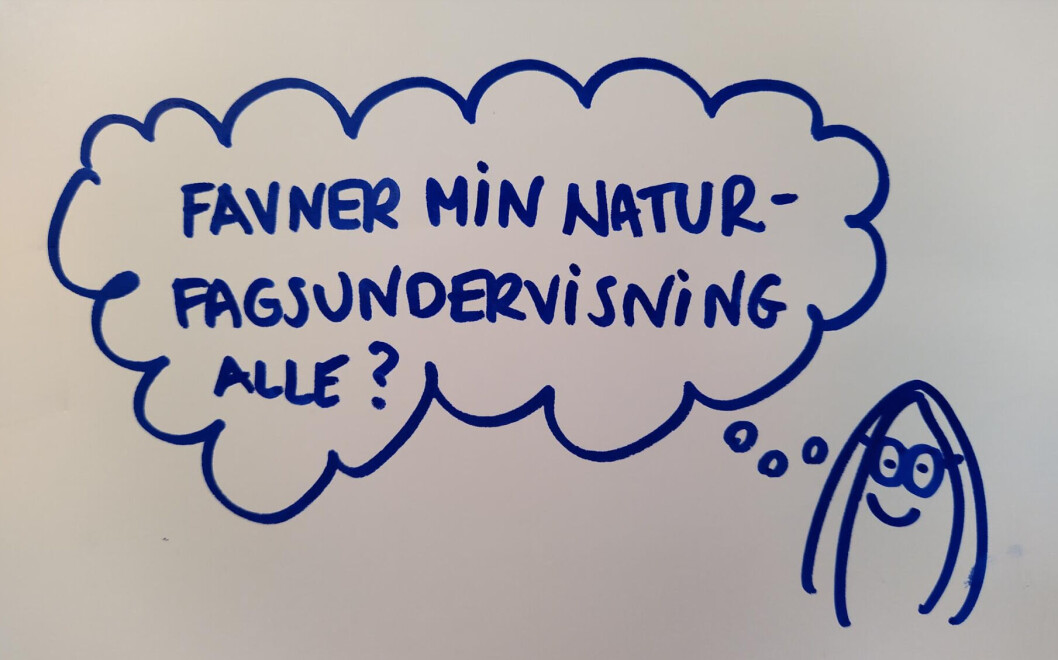 FAVNER MIN NATUR-
FAGSUNDERVISNING
ALLE?